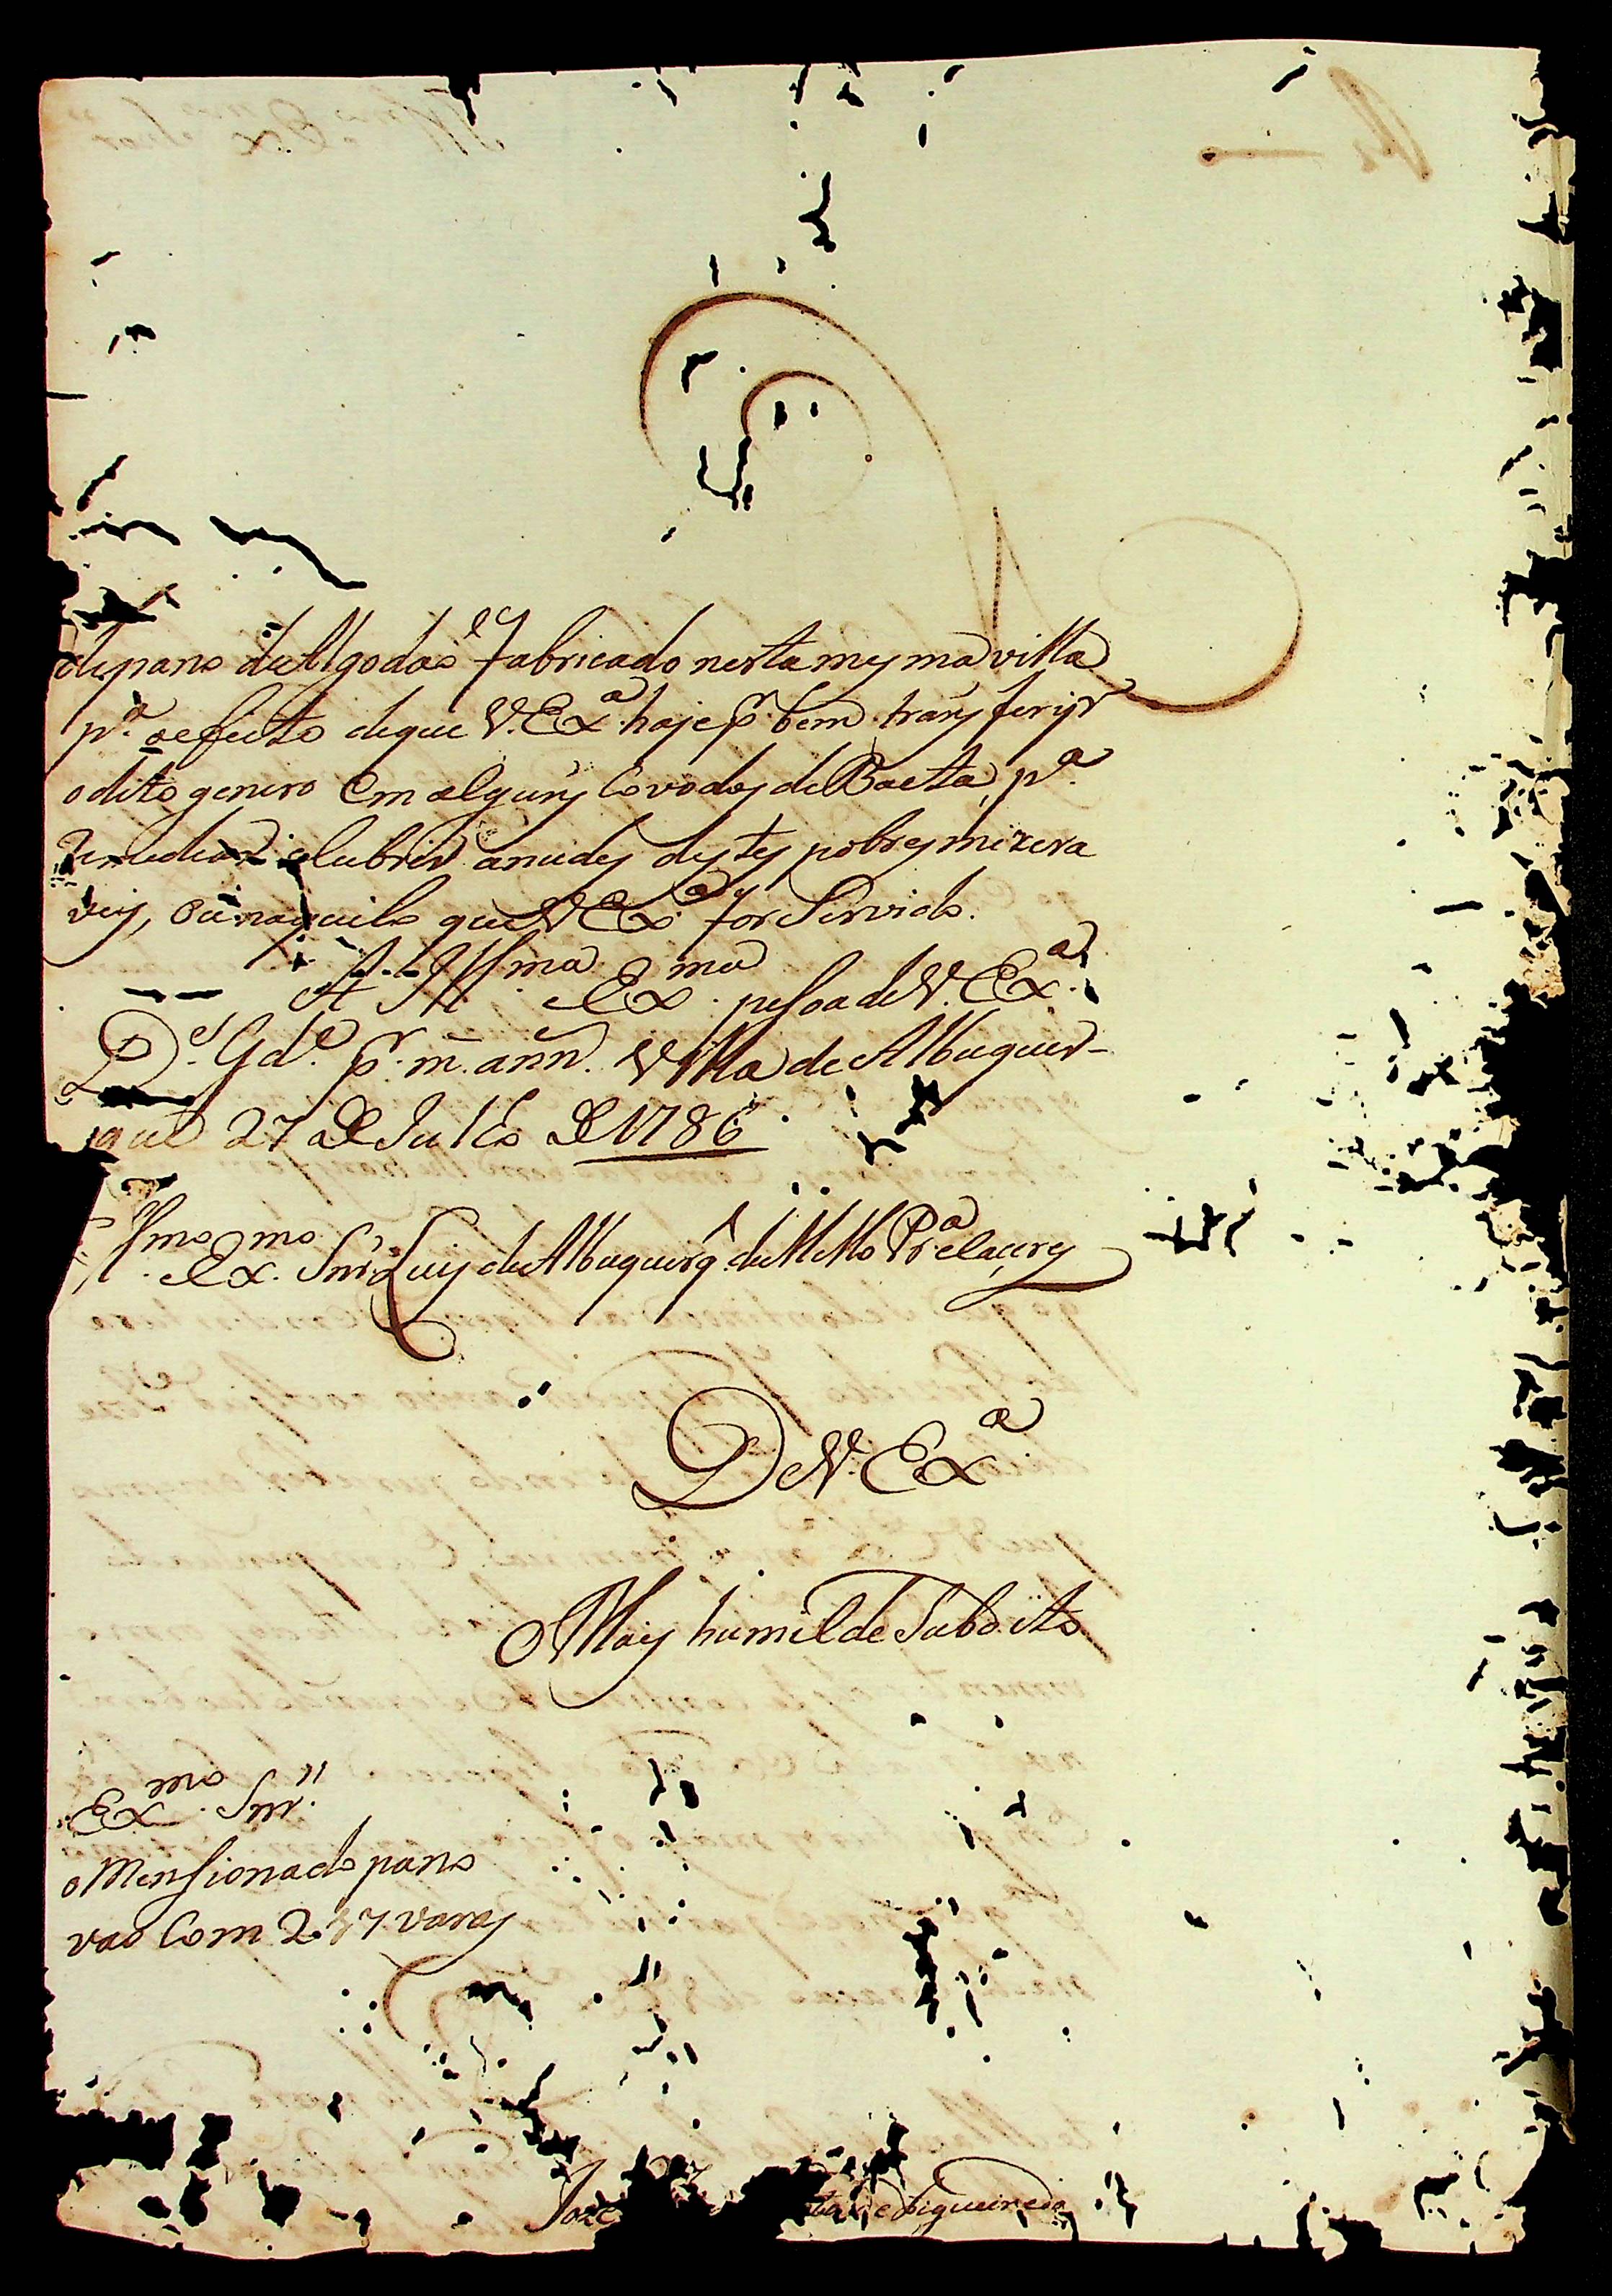 de pano de Algodaõ Fabricado nesta mesma villa
p.ª oefeito deque V. Ex.ª haje p.r bem transferijr
odito genero Em alguns Covados de Baeta, p.ª
Remediar eCubrir anudes destes pobres mizera
veis, Ou naquilo que V Ex.ª for Servido.
A Ill.ma Ex.ma pesoa de V. Ex.ª
D.s G.de p.r m. ann. Villa de Albuquer-
que 27 De Julho De 1786
Ill.mo Ex.mo Snr. Luis de Albuquerq. de Mello Pr.ª eCaçeres
D V. Ex.ª
O Mays humilde Subdito
Ex.mo Snr.
o Mensionado pano
vao Com 2.37 varas
Joze de Figueiredo